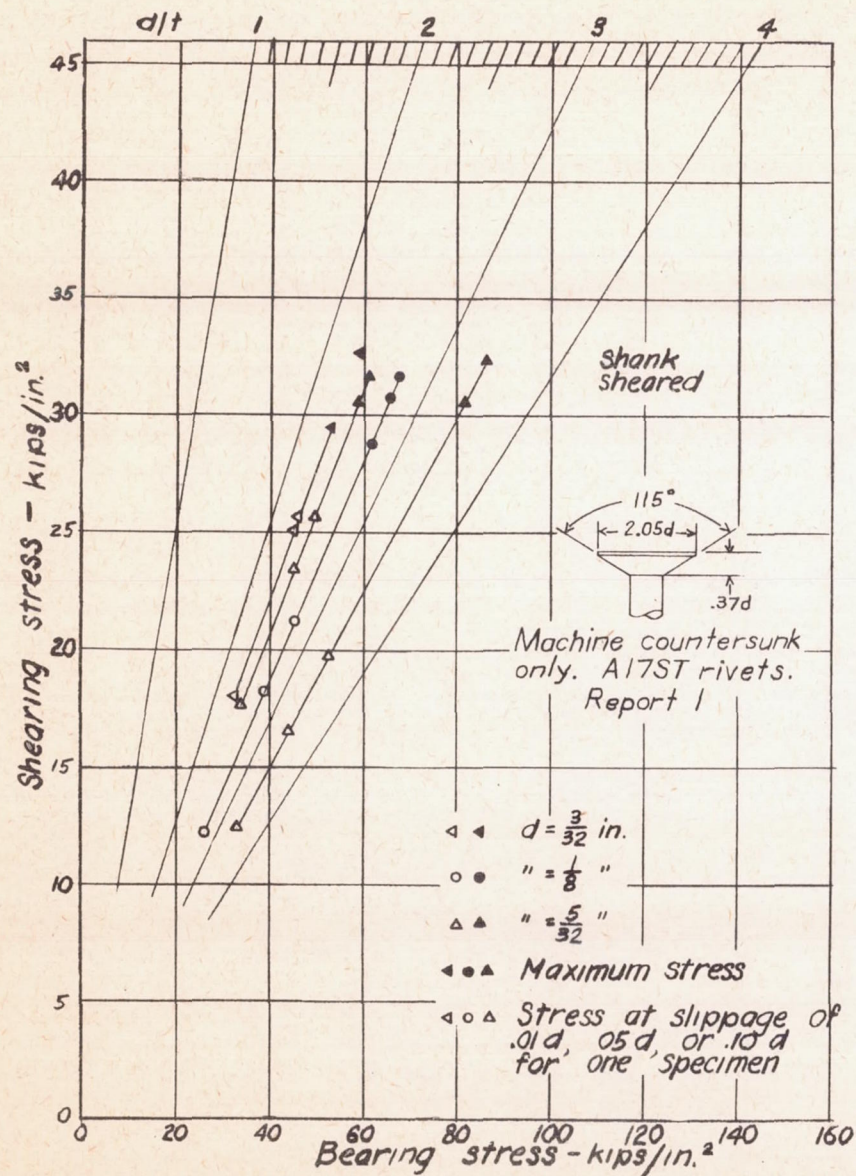 d/t 1 2 3 4
45
40
35
30
25
20
15
10
5
0
Shearing stress – kips/in.²
Shank
sheared
115°
2.05d
.37d
Machine countersunk
only. A17ST rivets.
Report 1
d = 3/32 in.
" = 1/8 "
" = 5/32 "
Maximum stress
Stress at slippage of
.01d, .05d, or .10d
for one specimen
0 20 40 60 80 100 120 140 160
Bearing stress – kips/in.²